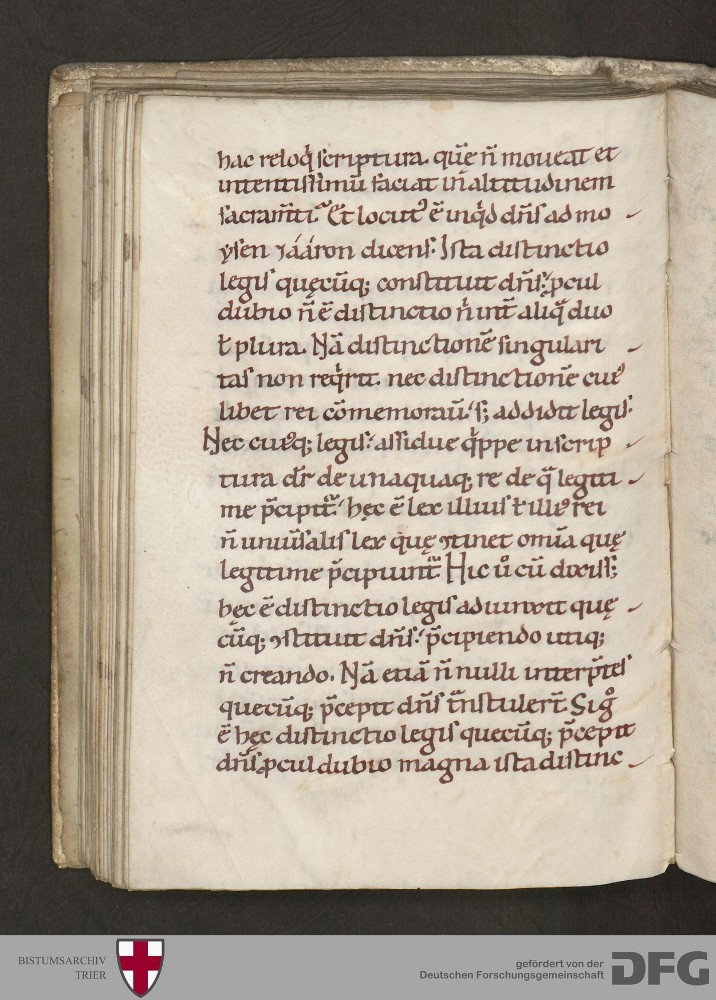 hac reloq̇ scriptura. quẹ̄ n̄ moueat et
intentissimū faciat in̄ altitudinem
sacram̄ti. Et locut᷒ ē inq̇d dn̄s ad mo
ysen ⁊ ááron dicens. Ista distinctio
legis quęcūq; constituit dn̄s. ꝓcul
dubio n̄ ē distinctio n̄ int̄ aliq̄ duo
ł plura. Nā distinctionē singulari
tas non req̇rit. nec distinctionē cui᷒
libet rei cōmemorau̅. s; addidit legis.
Nec cui᷒q; legis. assidue q̇ppe in scrip
tura dr̄ de unaquaq; re de q̄ legiti
me p̄cipit᷑. hęc ē lex illius ł illi᷒ rei
n̄ uniūsalis lex q̇uę ꝯtinet omīa quę
legitime p̄cipiunt᷑. Hic u̇ cū dixiss;
hęc ē distinctio legis adiunxit quę
cūq; ꝯstituit dn̄s. p̄cipiendo utiq;
n̄ creando. Nā etiā n̄ nulli interp̄tes
quecūq; p̄cepit dn̄s t̄nstulert̄. Si gͦ
ē hęc distinctio legis quecūq; p̄cepit
dn̄s ꝓcul dubio magna ista distinc
BISTUMSARCHIV
TRIER
gefördert von der
Deutschen Forschungsgemeinschaft
DFG